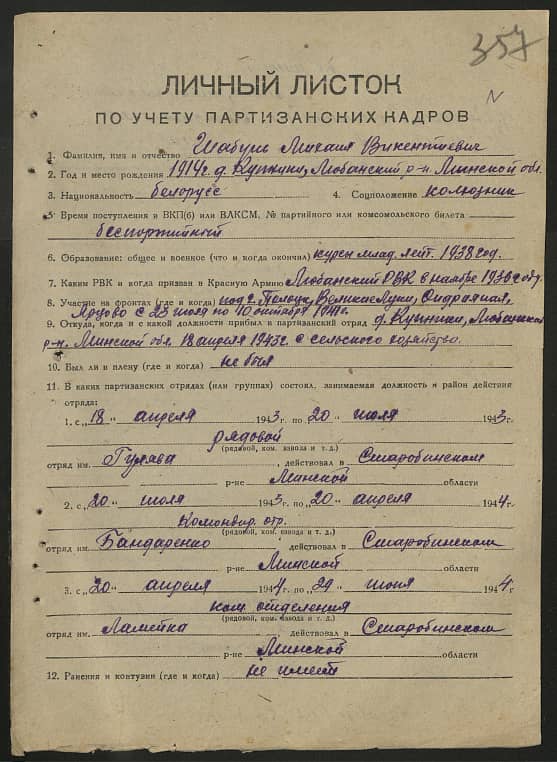 357
N
ЛИЧНЫЙ ЛИСТОК
ПО УЧЕТУ ПАРТИЗАНСКИХ КАДРОВ
1. Фамилия, имя и отчество Шабунь Михаил Викентиевич
2. Год и место рождения 1914 г. д. Купники, Любанский р-н. Минской обл.
3. Национальность белорусс 4. Соцположение колхозник
5. Время поступления в ВКП(б) или ВЛКСМ, № партийного или комсомольского билета
беспортийный
6. Образование: общее и военное (что и когда окончил) курсы млад. лейт. 1938 год.
7. Каким РВК и когда призван в Красную Армию Любанский РВК в ноябре 1936 году
8. Участие на фронтах (где и когда) под г. Полоцк, Великие Луки,
Ярцово с 23 июля по 10 октября 1941 г.
9. Откуда, когда и с какой должности прибыл в партизанский отряд д. Купники, Любанский
р-н. Минской обл. 18 апреля 1943 г. с сельского хозяйства.
10. Был ли в плену (где и когда) не был
11. В каких партизанских отрядах (или группах) состоял, занимаемая должность и район действия
отряда:
1. с „18" апреля 1943 г. по 20 „ июля 1943 г.
рядовой
(рядовой, ком. взвода и т. д.)
отряд им. Гулява, действовал в Старобинском
р-не Минской области
2. с „20" июля 1943 г. по „20" апреля 1944 г.
Комондир отр.
(рядовой, ком. взвода и т. д.)
отряд им. Бандаренко действовал в Старобинском
р-не Минской области
3. с „20" апреля 1944 г. по „29" июня 1944 г.
ком. отделения
(рядовой, ком. взвода и т. д.)
отряд им. Ламейка, действовал в Старобинском
р-не Минской области
12. Ранения и контузии (где и когда) не имеет